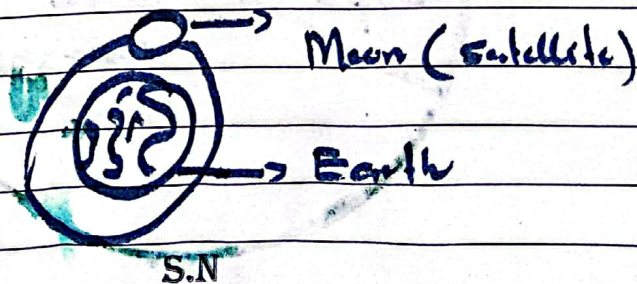 Moon (satellite)
Earth
S.N